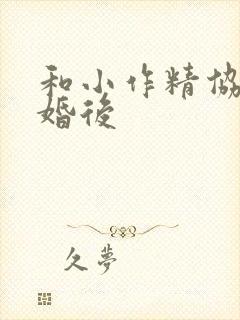 和小作精協
婚後
久夢